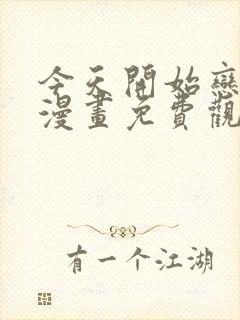 今天開始戀
漫畫免費觀
有一个江湖